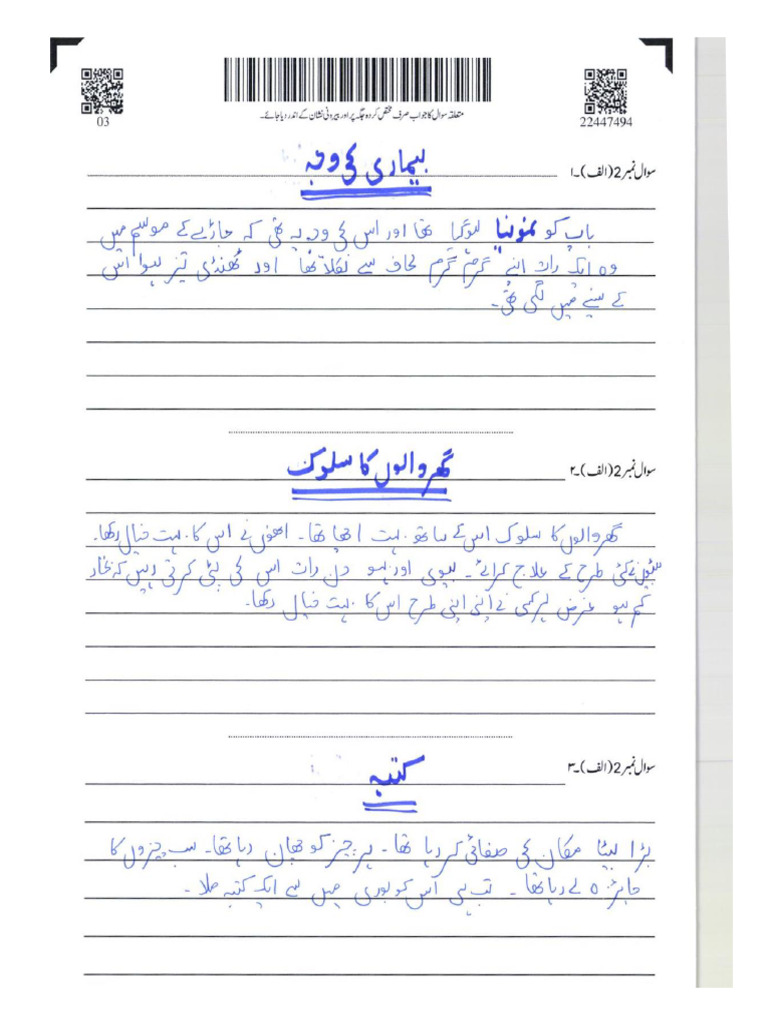 03
22447494
متعلقہ سوال کا جواب صرف مختص کردہ جگہ پر اور بیرونی نشان کے اندر دیا جائے۔
سوال نمبر 2 (الف)۔۱
بیماری کی وجہ
باپ کو نمونیا ہوگیا تھا اور اس کی وجہ یہ تھی کہ جاڑے کے موسم میں
وہ ایک رات اپنے گرم گرم لحاف سے نکلا تھا اور ٹھنڈی تیز ہوا اس
کے سینے میں لگی تھی۔
سوال نمبر 2 (الف)۔۲
گھر والوں کا سلوک
گھر والوں کا سلوک اس کے ساتھ بہت اچھا تھا۔ انھوں نے اس کا بہت خیال رکھا۔
کئی طرح کے علاج کرائے۔ بیوی اور بہو دن رات اس کی پٹی کرتی رہیں کہ بخار
کم ہو غرض ہر کسی نے اپنی اپنی طرح اس کا بہت خیال رکھا۔
سوال نمبر 2 (الف)۔۳
کتبہ
بڑا بیٹا مکان کی صفائی کر رہا تھا۔ ہر چیز کو چھان رہا تھا۔ سب چیزوں کا
جائزہ لے رہا تھا۔ تب ہی اس کو بوری میں سے ایک کتبہ ملا۔